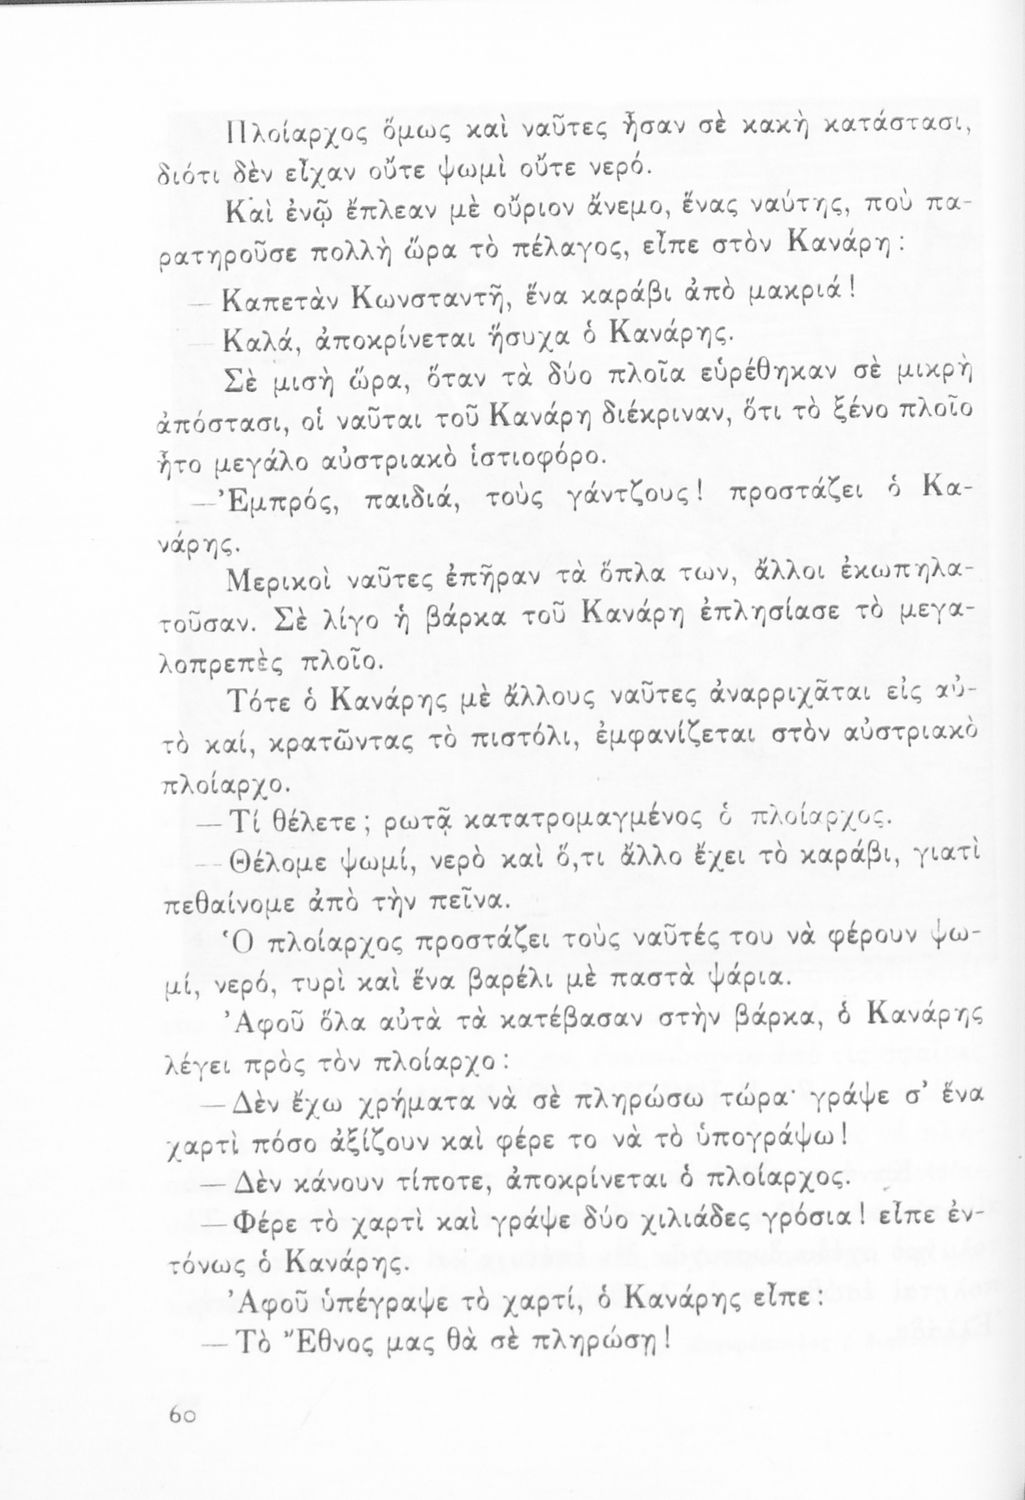 Πλοίαρχος ὅμως καὶ ναῦτες ἦσαν σὲ κακὴ κατάστασι,
διότι δὲν εἶχαν οὔτε ψωμὶ οὔτε νερό.
Καὶ ἐνῷ ἔπλεαν μὲ οὔριον ἄνεμο, ἕνας ναύτης, ποὺ πα-
ρατηροῦσε πολλὴ ὥρα τὸ πέλαγος, εἶπε στὸν Κανάρη :
— Καπετὰν Κωνσταντῆ, ἕνα καράβι ἀπὸ μακριά !
— Καλά, ἀποκρίνεται ἥσυχα ὁ Κανάρης.
Σὲ μισὴ ὥρα, ὅταν τὰ δύο πλοῖα εὑρέθηκαν σὲ μικρὴ
ἀπόστασι, οἱ ναῦται τοῦ Κανάρη διέκριναν, ὅτι τὸ ξένο πλοῖο
ἦτο μεγάλο αὐστριακὸ ἱστιοφόρο.
— Ἐμπρός, παιδιά, τοὺς γάντζους ! προστάζει ὁ Κα-
νάρης.
Μερικοὶ ναῦτες ἐπῆραν τὰ ὅπλα των, ἄλλοι ἐκωπηλα-
τοῦσαν. Σὲ λίγο ἡ βάρκα τοῦ Κανάρη ἐπλησίασε τὸ μεγα-
λοπρεπὲς πλοῖο.
Τότε ὁ Κανάρης μὲ ἄλλους ναῦτες ἀναρριχᾶται εἰς αὐ-
τὸ καί, κρατῶντας τὸ πιστόλι, ἐμφανίζεται στὸν αὐστριακὸ
πλοίαρχο.
— Τί θέλετε ; ρωτᾷ κατατρομαγμένος ὁ πλοίαρχος.
— Θέλομε ψωμί, νερὸ καὶ ὅ,τι ἄλλο ἔχει τὸ καράβι, γιατὶ
πεθαίνομε ἀπὸ τὴν πεῖνα.
Ὁ πλοίαρχος προστάζει τοὺς ναῦτές του νὰ φέρουν ψω-
μί, νερό, τυρὶ καὶ ἕνα βαρέλι μὲ παστὰ ψάρια.
Ἀφοῦ ὅλα αὐτὰ τὰ κατέβασαν στὴν βάρκα, ὁ Κανάρης
λέγει πρὸς τὸν πλοίαρχο :
— Δὲν ἔχω χρήματα νὰ σὲ πληρώσω τώρα· γράψε σ’ ἕνα
χαρτὶ πόσο ἀξίζουν καὶ φέρε το νὰ τὸ ὑπογράψω !
— Δὲν κάνουν τίποτε, ἀποκρίνεται ὁ πλοίαρχος.
— Φέρε τὸ χαρτὶ καὶ γράψε δύο χιλιάδες γρόσια ! εἶπε ἐν-
τόνως ὁ Κανάρης.
Ἀφοῦ ὑπέγραψε τὸ χαρτί, ὁ Κανάρης εἶπε :
— Τὸ Ἔθνος μας θὰ σὲ πληρώσῃ !
60